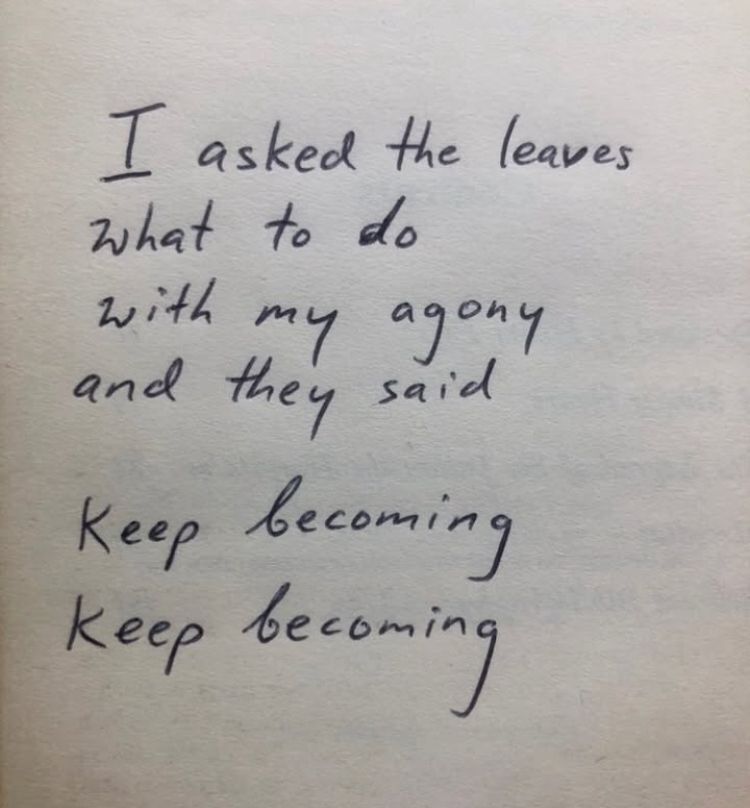 I asked the leaves
what to do
with my agony
and they said
Keep becoming
Keep becoming